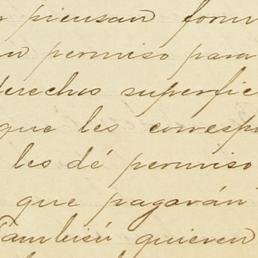 piensan form
un permiso para
derechos superfic
que les corresp
les dé permiso
que pagarán
También quieren